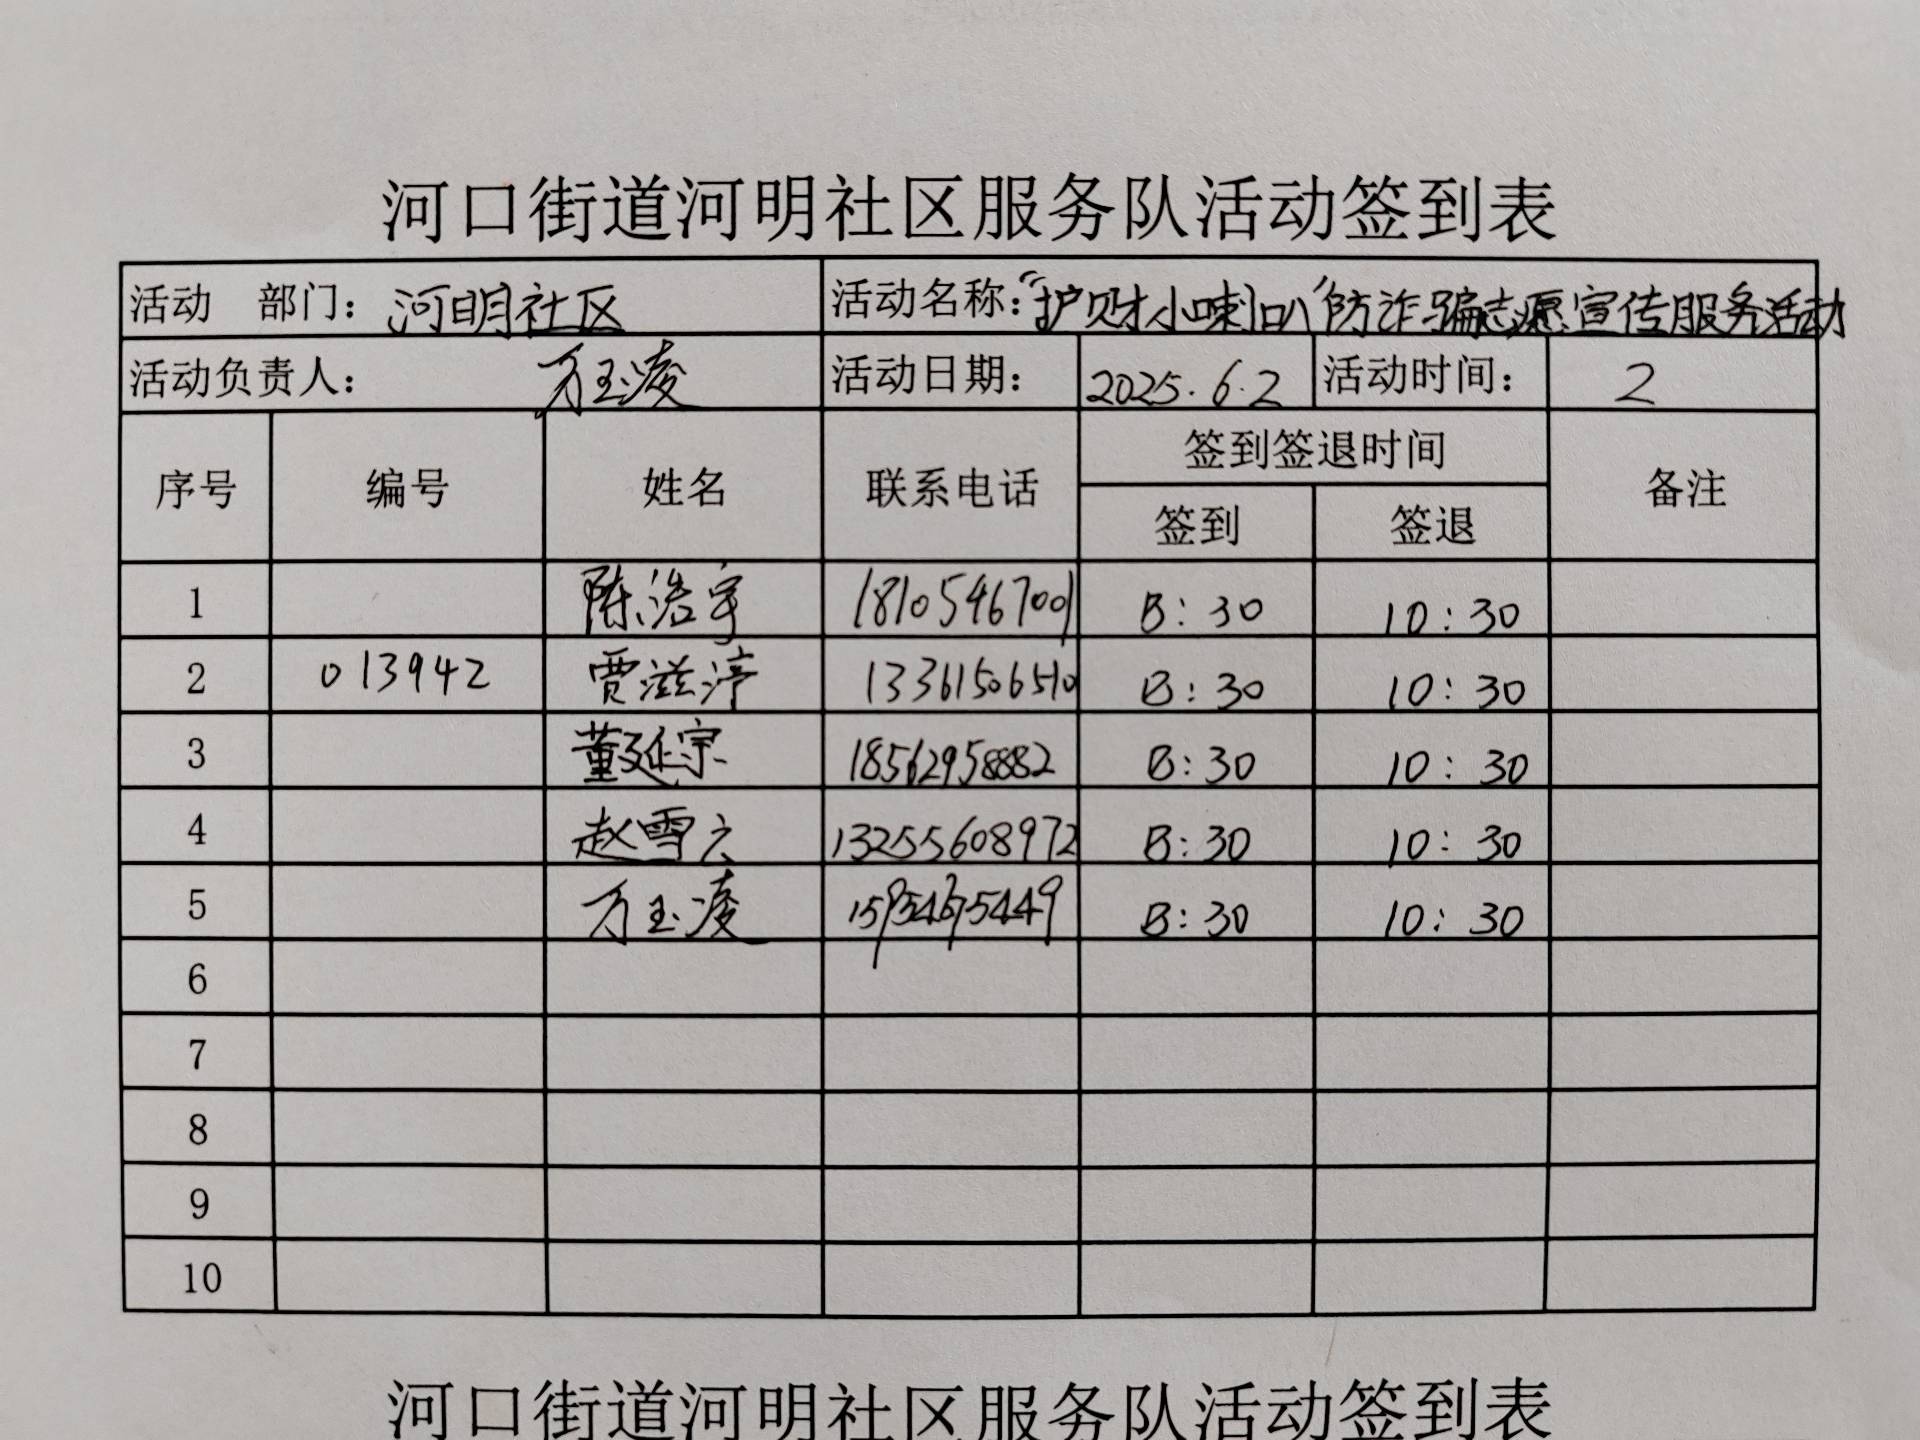 河口街道河明社区服务队活动签到表
活动 部门：河明社区 活动名称：“护财小喇叭”防诈骗志愿宣传服务活动
活动负责人： 万玉凌 活动日期： 2025.6.2 活动时间： 2
序号 编号 姓名 联系电话 签到签退时间 备注
签到 签退
1 陈浩宇 18105467001 8:30 10:30
2 013942 贾滋渟 13361506510 8:30 10:30
3 董延宗 18562958882 8:30 10:30
4 赵雪六 13255608972 8:30 10:30
5 万玉凌 8:30 10:30
6
7
8
9
10
河口街道河明社区服务队活动签到表